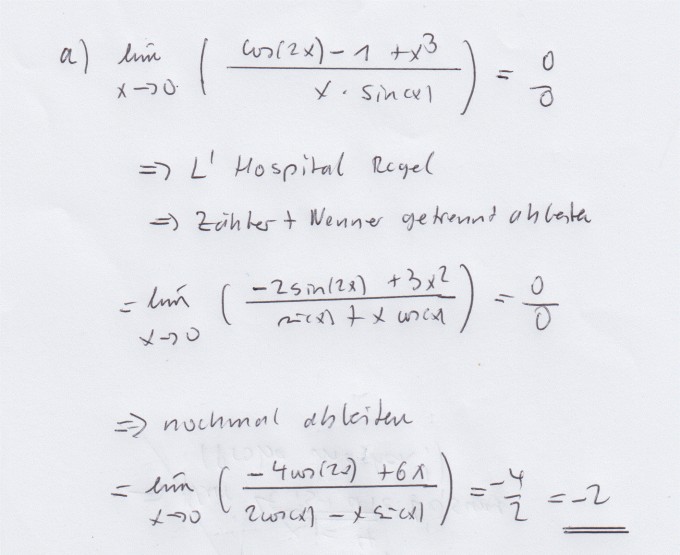 a) lim x→0 ( (cos(2x) - 1 + x³) / (x · sin(x)) ) = 0/0
=> L' Hospital Regel
=> Zähler + Nenner getrennt ableiten
= lim x→0 ( (-2 sin(2x) + 3x²) / (sin(x) + x cos(x)) ) = 0/0
=> nochmal ableiten
= lim x→0 ( (-4cos(2x) + 6x) / (2cos(x) - x sin(x)) ) = -4/2 = -2